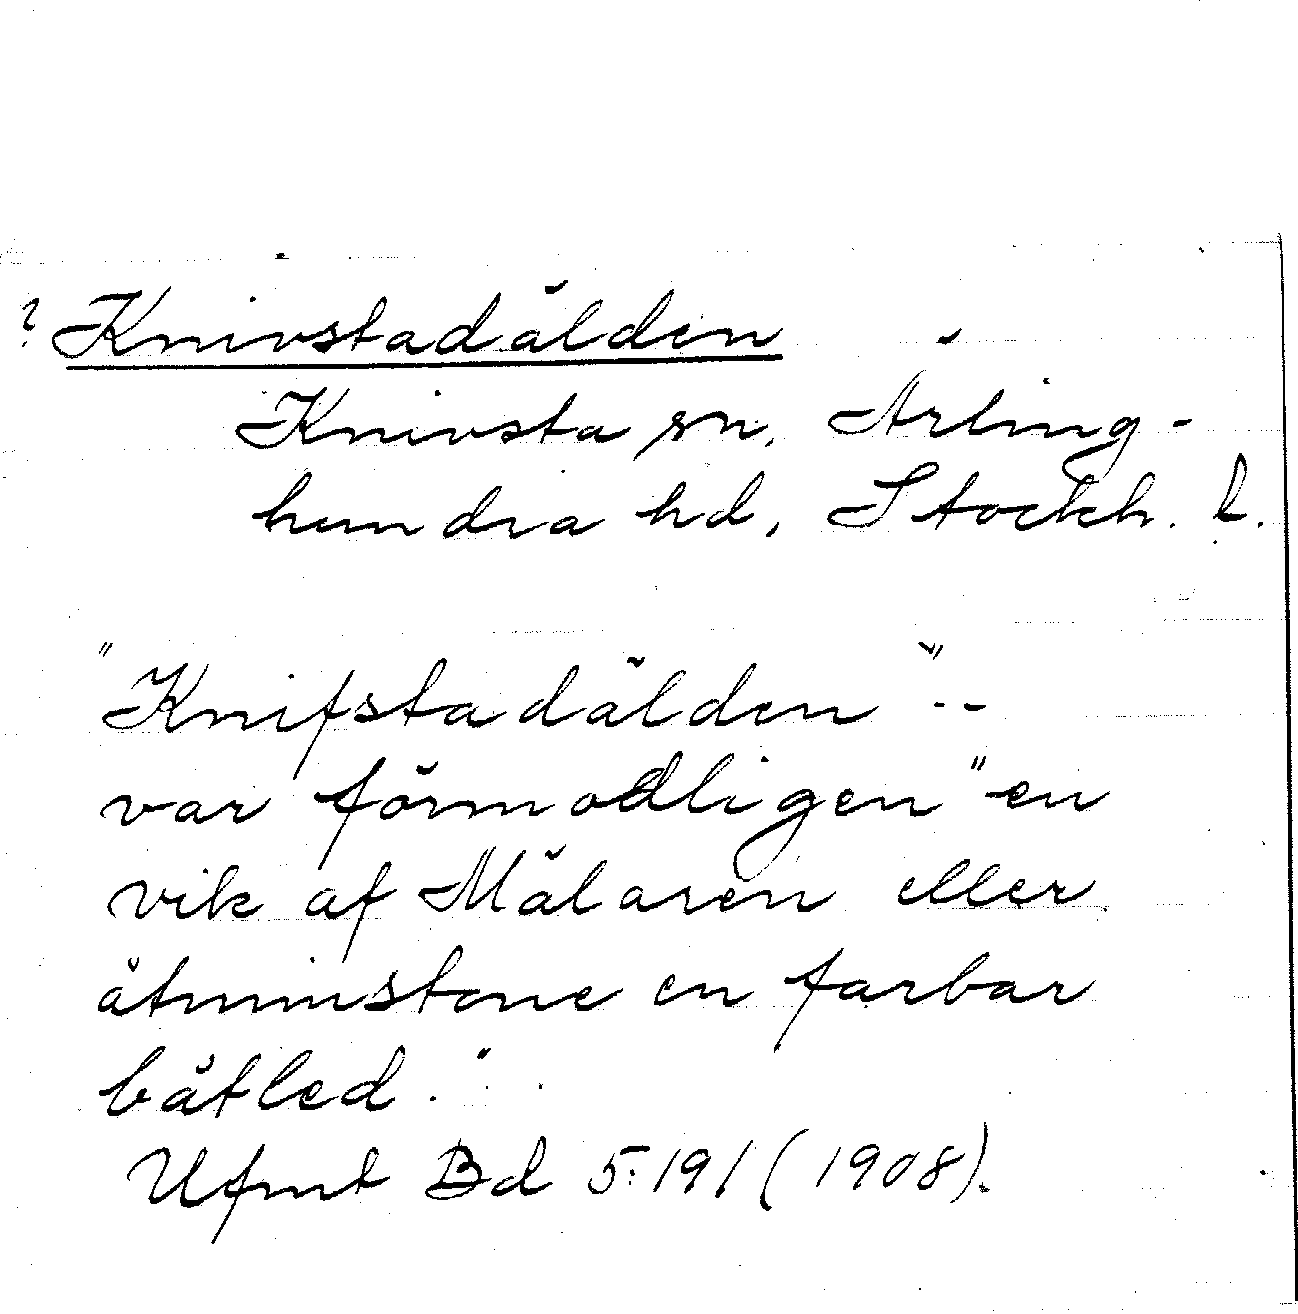 ? Knivstadålden
Knivsta sn, Ärling-
hundra hd, Stockh. l.
"Knifstadålden" --
var förmodligen "en
vik af Mälaren eller
åtminstone en farbar
båtled."
Ufmt Bd 5:191 (1908).